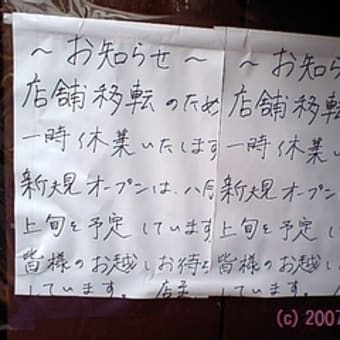 ～お知らせ～
店舗移転のため
一時休業いたします
新規オープンは、八月
上旬を予定しています
皆様のお越しお待ち
しています。 店主
～お知ら
店舗移転
一時休業い
新規オープン
上旬を予定
皆様のお越
しています。
(c) 2007